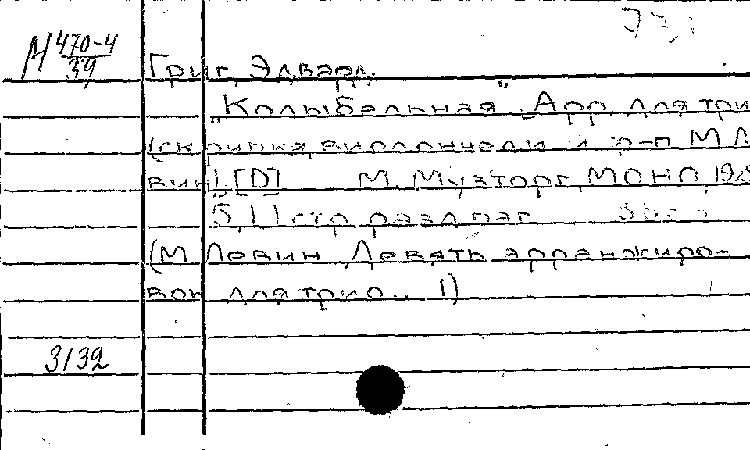 М 470-4
39
Григ, Эдвард.
"Колыбельная". Арр. для три
(скрипка, виолончели и ф-п М Л
вин). [D] М. Музторг, МОНО, 19
5, 11 стр. разд. паг.
(М. Левин. Девять арранжиро-
вок для трио.. 1)
3132